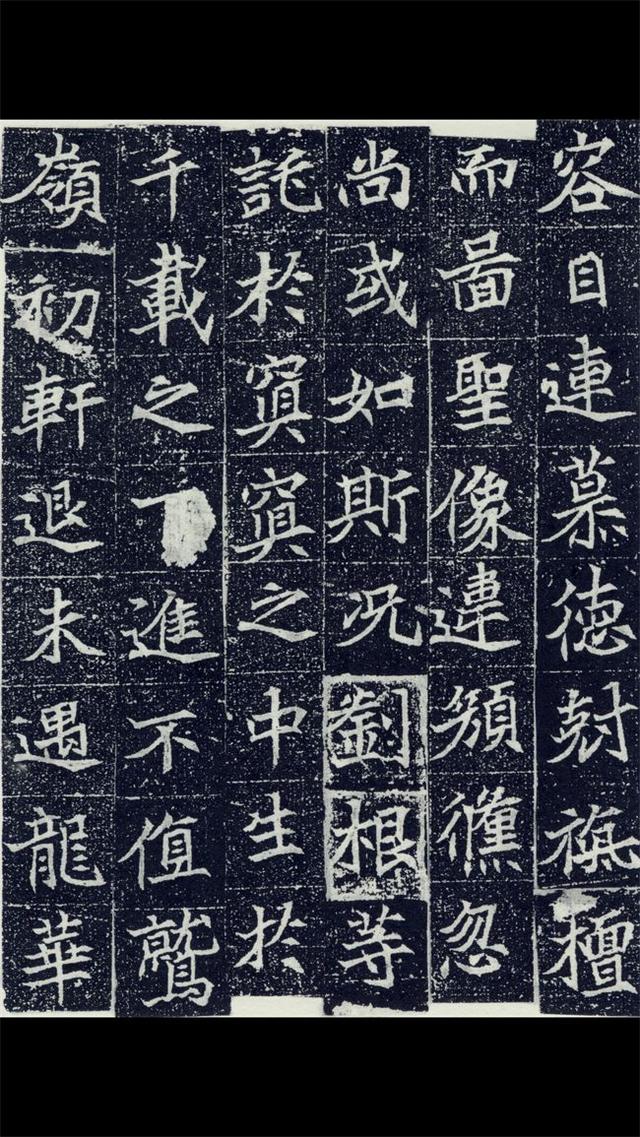 容目連慕德尅栴檀
而啚聖像違顏儵忽
尚或如斯况劉根等
託於冥冥之中生於
千載之下進不值鷲
嶺初軒退未遇龍華